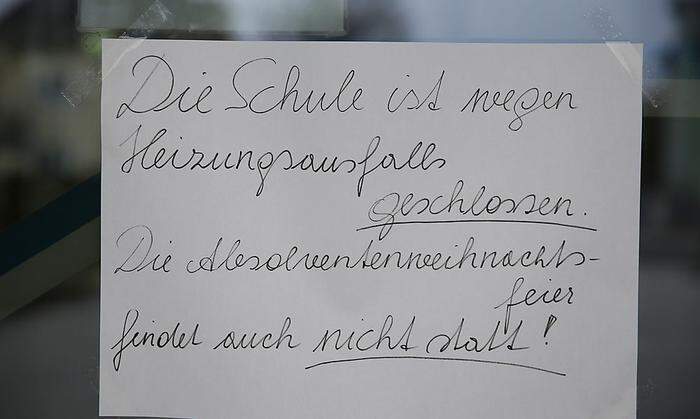 Die Schule ist wegen
Heizungsausfalls
geschlossen.
Die Absolventenweihnachts-
feier
findet auch nicht statt!